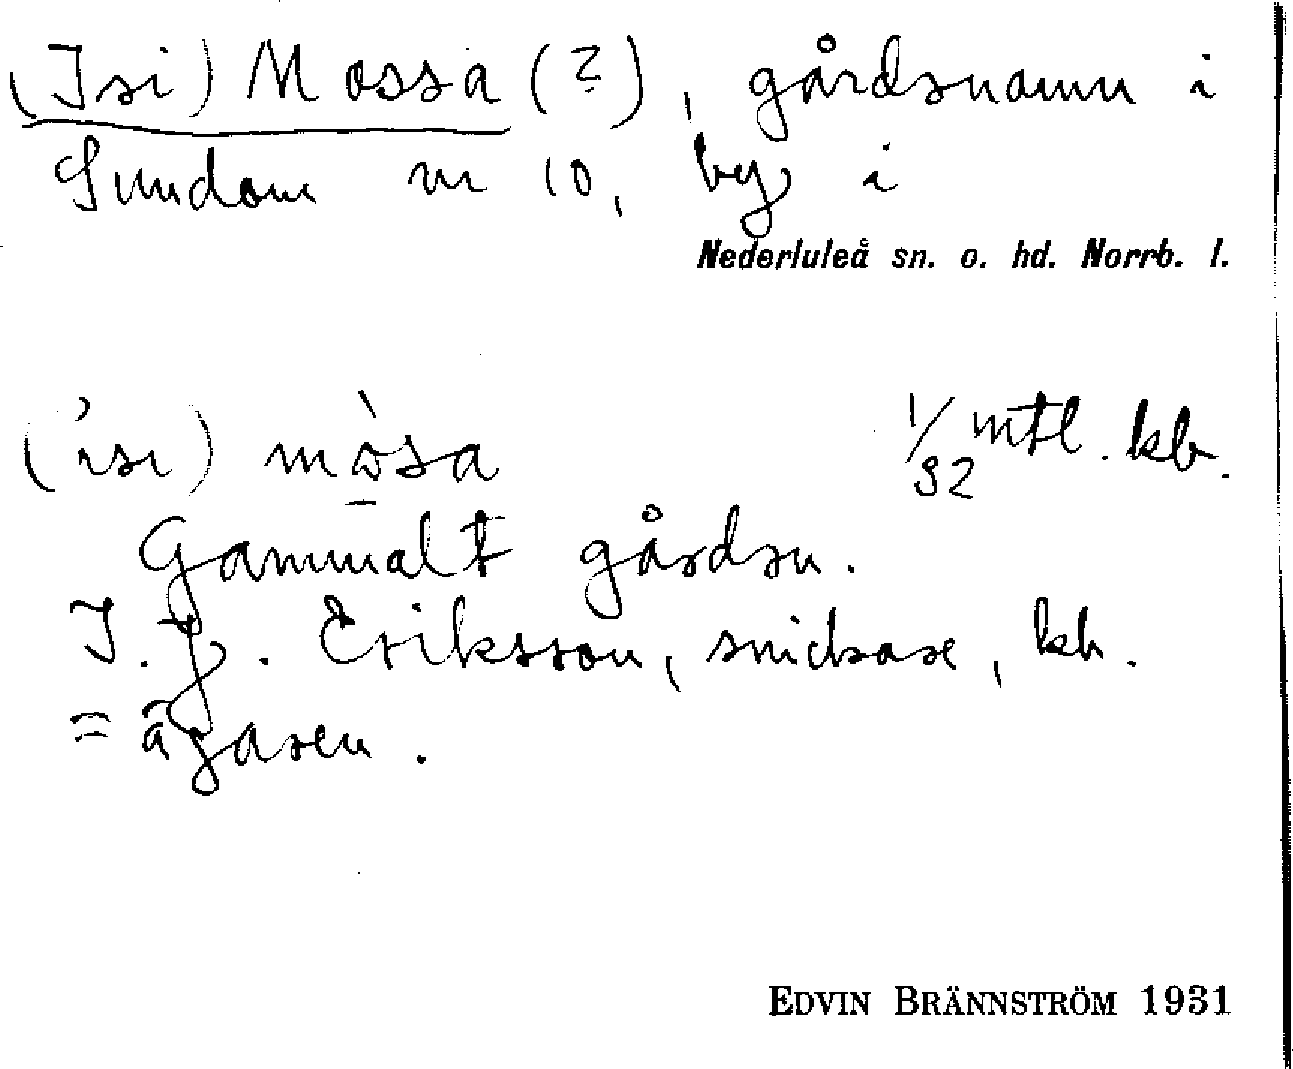 (Isi) Mossa (?), gårdsnamn i
Sundom nr 10, by i
Nederluleå sn. o. hd. Norrb. l.
(ísı) mòsa 1/32 mtl. kb.
Gammalt gårdsn.
I. G. Eriksson, snickare, kb.
= ägaren.
EDVIN BRÄNNSTRÖM 1931